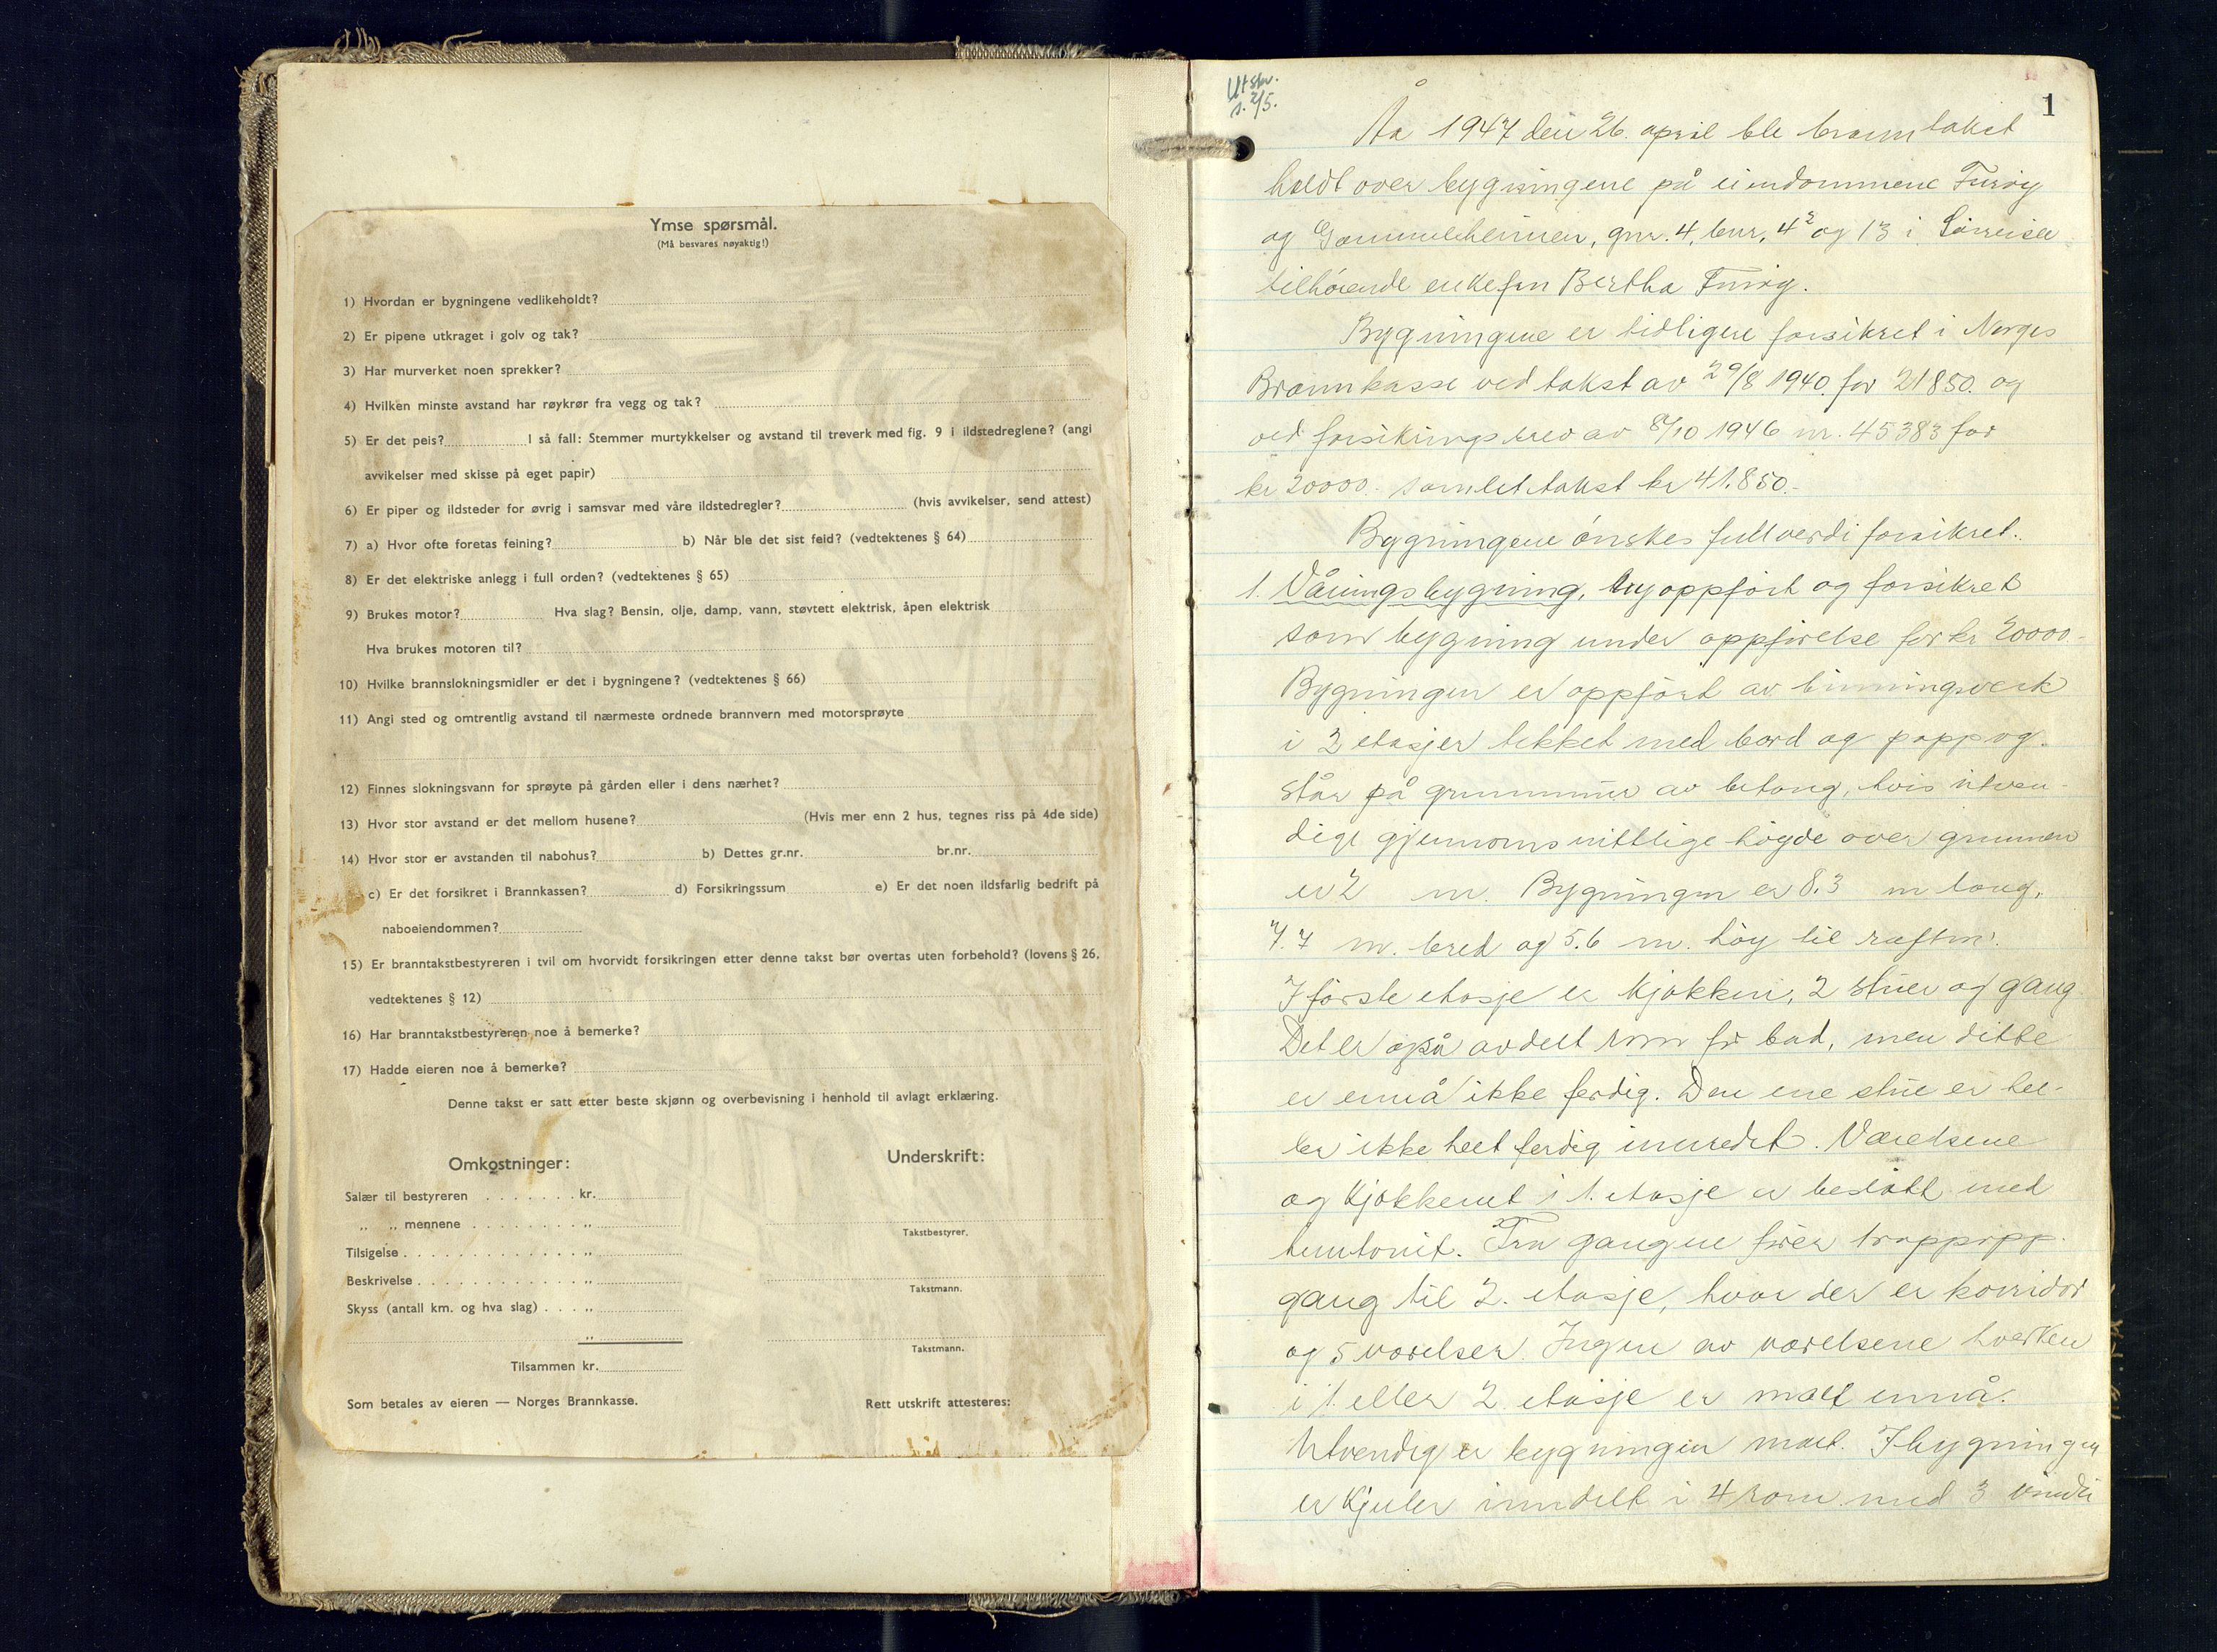 Ymse spørsmål.
(Må besvares nøyaktig!)
1) Hvordan er bygningene vedlikeholdt?
2) Er pipene utkraget i golv og tak?
3) Har murverket noen sprekker?
4) Hvilken minste avstand har røykrør fra vegg og tak?
5) Er det peis? I så fall: Stemmer murtykkelser og avstand til treverk med fig. 9 i ildstedreglene? (angi
avvikelser med skisse på eget papir)
6) Er piper og ildsteder for øvrig i samsvar med våre ildstedregler? (hvis avvikelser, send attest)
7) a) Hvor ofte foretas feining? b) Når ble det sist feid? (vedtektenes § 64)
8) Er det elektriske anlegg i full orden? (vedtektenes § 65)
9) Brukes motor? Hva slag? Bensin, olje, damp, vann, støvtett elektrisk, åpen elektrisk
Hva brukes motoren til?
10) Hvilke brannslokningsmidler er det i bygningene? (vedtektenes § 66)
11) Angi sted og omtrentlig avstand til nærmeste ordnede brannvern med motorsprøyte
12) Finnes slokningsvann for sprøyte på gården eller i dens nærhet?
13) Hvor stor avstand er det mellom husene? (Hvis mer enn 2 hus, tegnes riss på 4de side)
14) Hvor stor er avstanden til nabohus? b) Dettes gr.nr. br.nr.
c) Er det forsikret i Brannkassen? d) Forsikringssum e) Er det noen ildsfarlig bedrift på
naboeiendommen?
15) Er branntakstbestyreren i tvil om hvorvidt forsikringen etter denne takst bør overtas uten forbehold? (lovens § 26,
vedtektenes § 12)
16) Har branntakstbestyreren noe å bemerke?
17) Hadde eieren noe å bemerke?
Denne takst er satt etter beste skjønn og overbevisning i henhold til avlagt erklæring.
Omkostninger:
Salær til bestyreren . . . . . . . kr.
„ „ mennene . . . . . . . . . „
Tilsigelse . . . . . . . . . . . . . . „
Beskrivelse . . . . . . . . . . . . . „
Skyss (antall km. og hva slag) . . . „
„
Tilsammen kr.
Som betales av eieren — Norges Brannkasse.
Underskrift:
Takstbestyrer.
Takstmann.
Takstmann.
Rett utskrift attesteres:
Utskr.
s. 2/5.
1
År 1947 den 26. april ble branntakst
holdt over bygningene på eiendommene Furøy
og Gammelheimen, gnr. 4, bnr. 4² og 13 i Sørreisa
tilhørende enkefru Bertha Furøy.
Bygningene er tidligere forsikret i Norges
Brannkasse ved takst av 29/8 1940 for 21850. og
ved forsikringsbrev av 8/10 1946 nr. 45383 for
kr 20000.- samlet takst kr 41.850.-
Bygningene ønskes fullverdi forsikret.
1. Våningsbygning, ny oppført og forsikret
som bygning under oppførelse for kr 20000.-
Bygningen er oppført av binningsverk
i 2 etasjer tekket med bord og papp og
står på grunnmur av betong, hvis utven-
dige gjennomsnittlige høyde over grunnen
er 2 m. Bygningen er 8.3 m lang,
7.7 m. bred og 5.6 m. høy til raften.
I første etasje er kjøkken, 2 stuer og gang
Det er også avdelt rom for bad, men dette
er ennå ikke ferdig. Den ene stue er hel-
ler ikke helt ferdig innredet. Værelsene
og kjøkkenet i 1. etasje er beslått med
huntonit. Fra gangen fører trappopp-
gang til 2. etasje, hvor der er korridor
og 5 værelser. Ingen av værelsene hverken
i 1 eller 2 etasje er malt ennå.
Utvendig er bygningen malt. I bygningen
er kjeller inndelt i 4 rom med 3 vindu